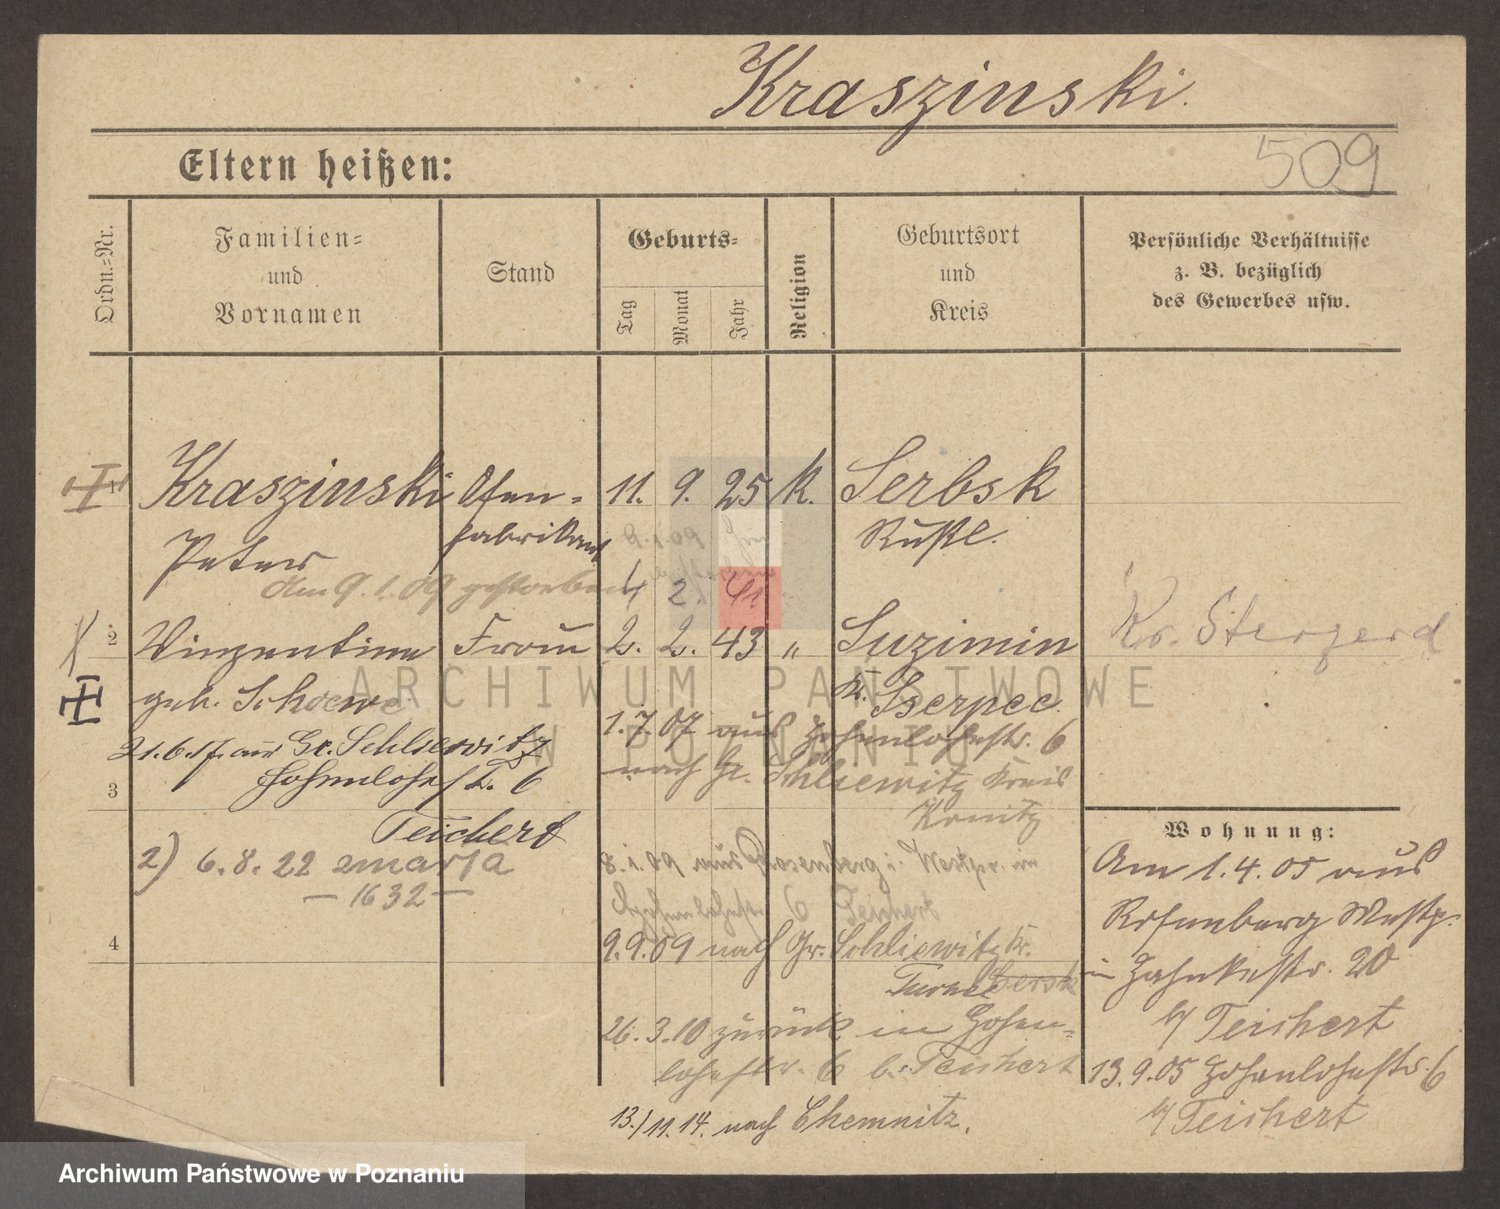 Kraszinski.
509
Eltern heißen:
Ordn.-Nr.
Familien-
und
Vornamen
Stand
Geburts-
Tag
Monat
Jahr
Religion
Geburtsort
und
Kreis
Persönliche Verhältnisse
z. B. bezüglich
des Gewerbes usw.
Kraszinski Ofen- 11. 9. 25 K. Serbsk
Peter fabrikant Rußl.
am 9.1.09 gestorben
4 2. 41
2 Vinzentine Frau 2. 2. 43 " Suzimin
geb. Schoewe Kr. Sserpec
Kr. Stargard
1.7.07 aus Hohenlohestr. 6
nach Gr. Schliewitz Kreis
Konitz
21.6.17. aus Gr. Schliewitz
Hohenlohestr. 6
Teichert
3
2) 6.8.22 zmarła
— 1632 —
8.1.09 aus Rosenberg i. Westpr. in
Hohenlohestr 6 Teichert
4
9.9.09 nach Gr. Schliewitz Kr.
Tuchel
26.3.10 zurück in Hohen-
lohestr. 6 b. Teichert
13./11.14. nach Chemnitz.
Wohnung:
Am 1.4.05 aus
Rosenberg Westpr.
in 20
b/ Teichert
13.9.05 Hohenlohestr. 6
b/ Teichert
ARCHIWUM PAŃSTWOWE
W POZNANIU
Archiwum Państwowe w Poznaniu